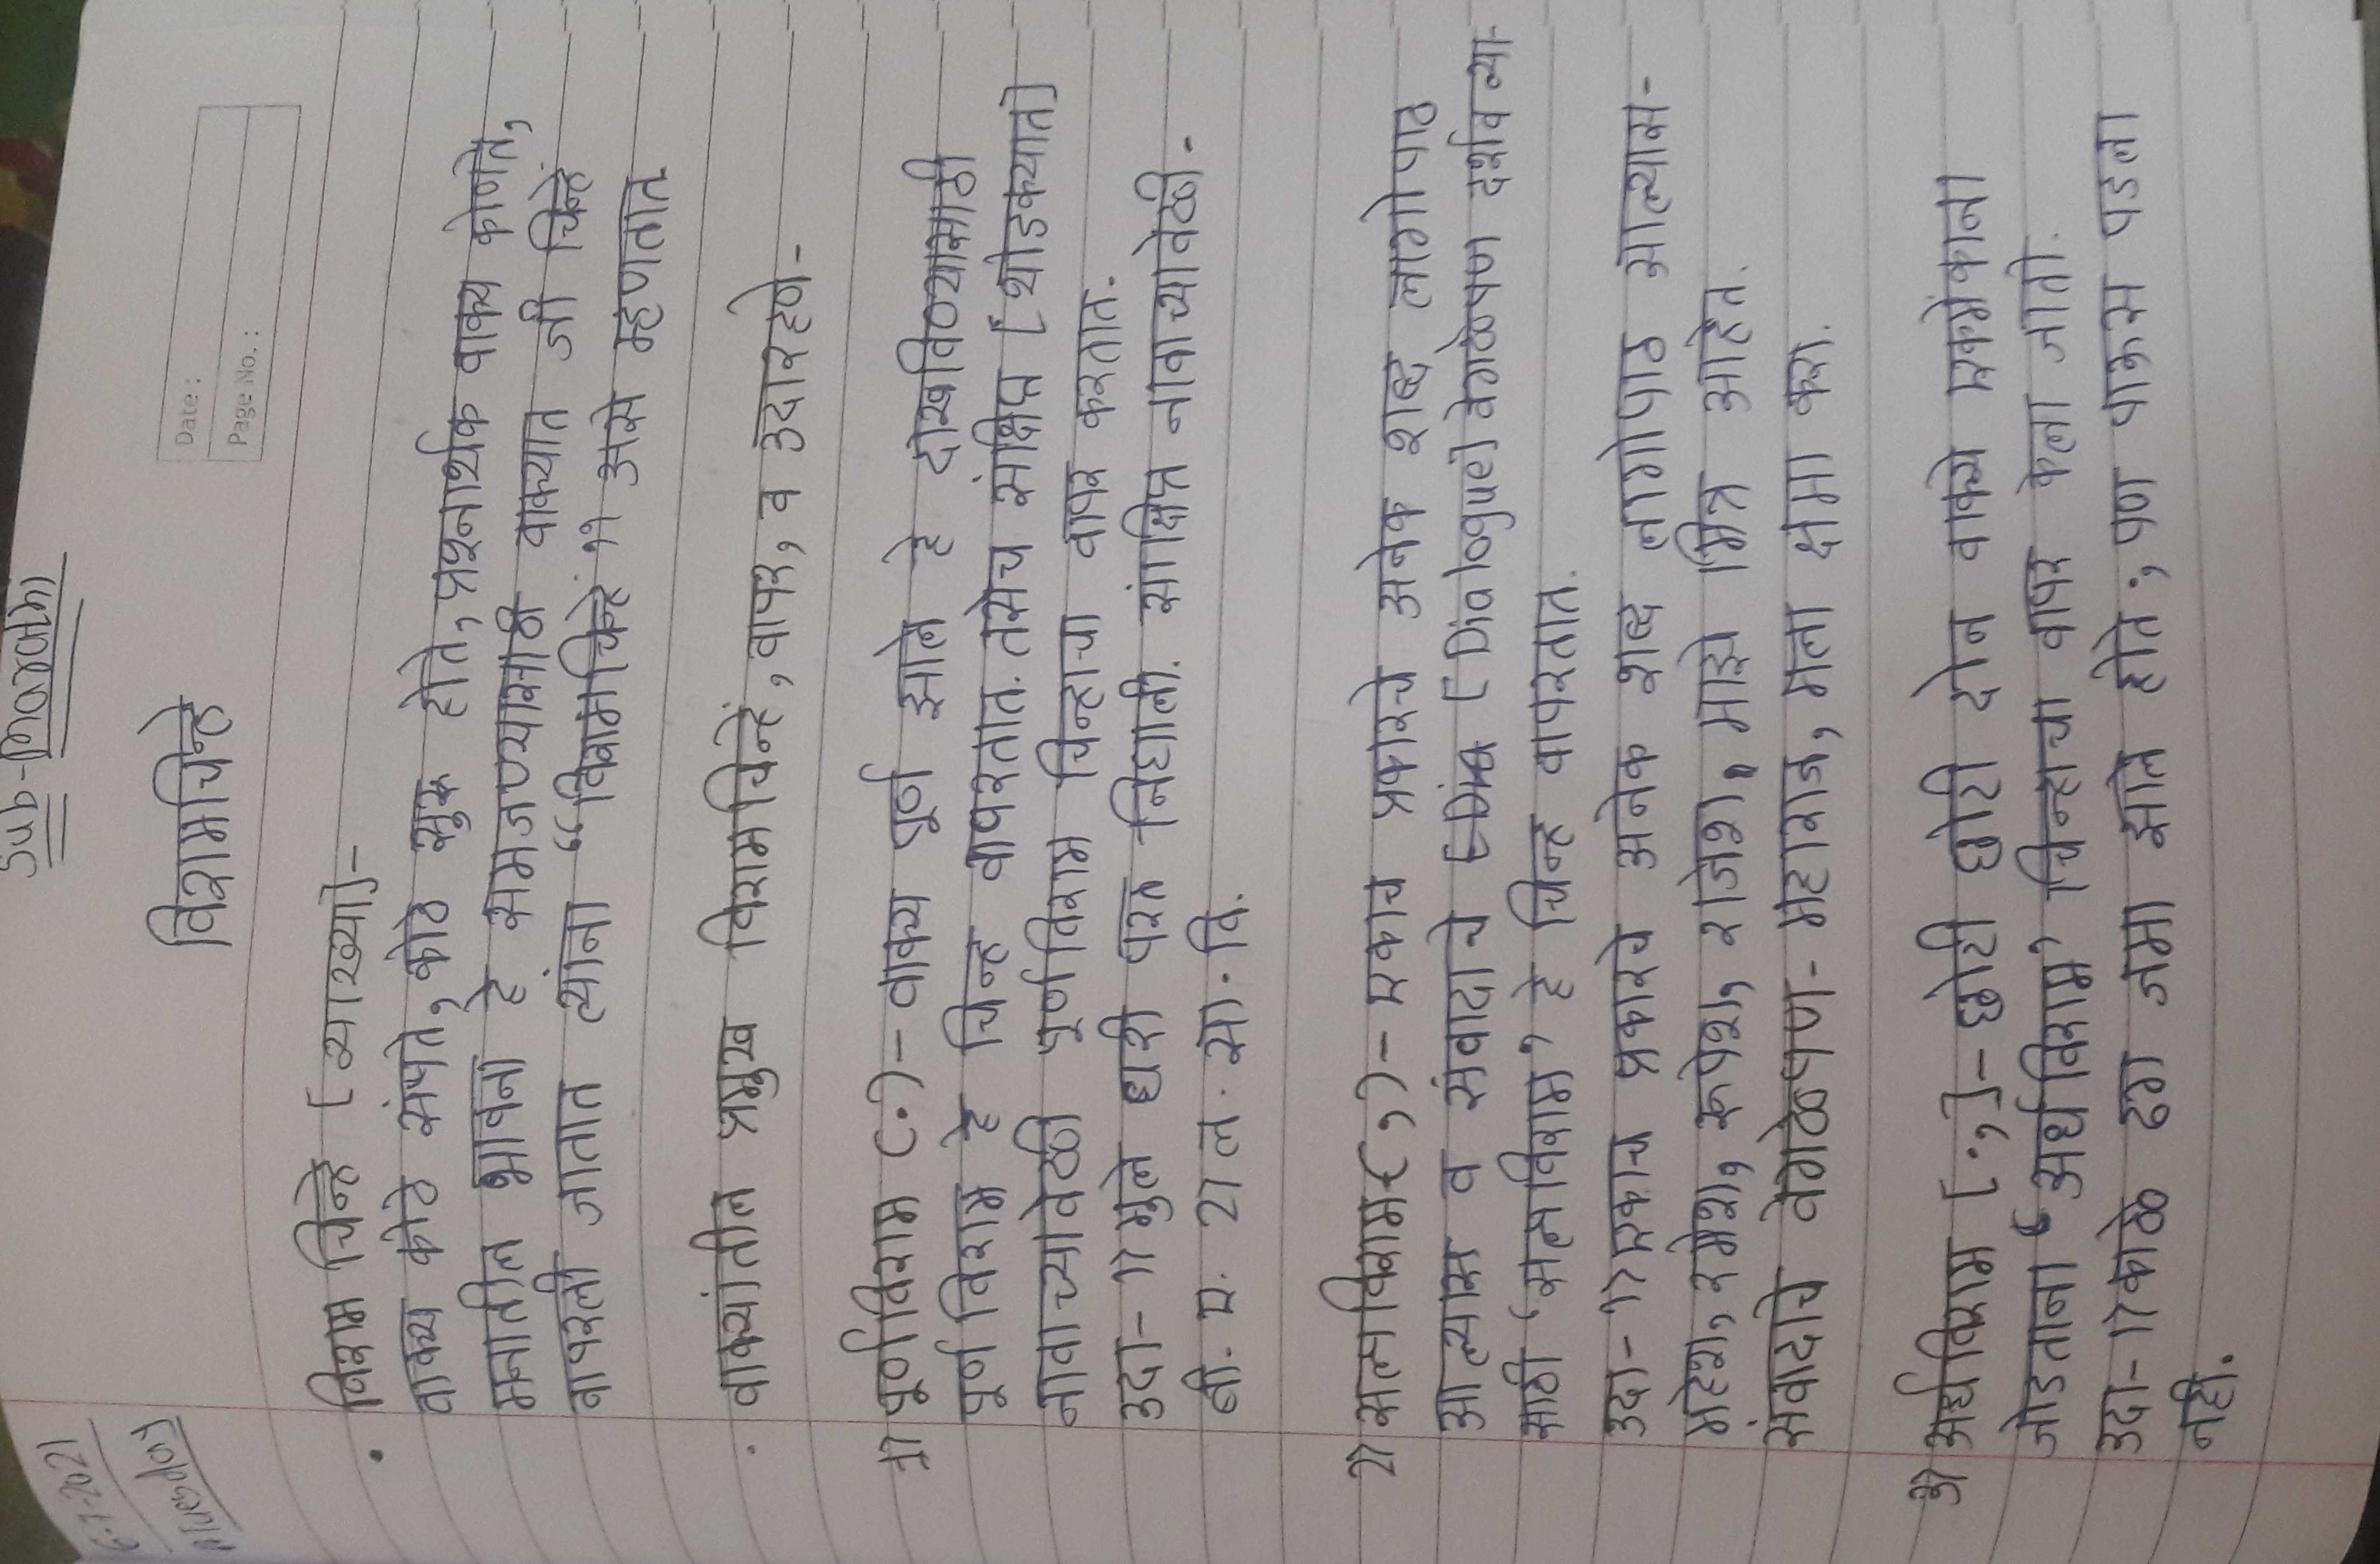 Sub-[Marathi]
6-7-2021
[Tuesday]
Date:
Page No.:
विरामचिन्हे
• विराम चिन्हे [व्याख्या]-
वाक्य कोठे संपते, कोठे सुरू होते, प्रश्नार्थक वाक्य कोणते,
मनातील भावना हे समजण्यासाठी वाक्यात जी चिन्हे
वापरली जातात त्यांना “विरामचिन्हे” असे म्हणतात.
• वाक्यांतील प्रमुख विरामचिन्हे, वापर, व उदारहणे-
1) पूर्णविराम (.)- वाक्य पूर्ण झाले हे दाखविण्यासाठी
पूर्ण विराम हे चिन्ह वापरतात. तसेच संक्षिप्त [थोडक्यात]
नावाच्यावेळी पूर्णविराम चिन्हाचा वापर करतात.
उदा- 1) मुले घरी परत निघाली. सांक्षिप्त नावाच्यावेळी-
बी. ए. 2) ल. सा. वि.
2) सल्पविराम(,)- एकाच प्रकारचे अनेक शब्द लागोपाठ
आल्यास व संवादाचे [Dialogue] वेगळेपण दर्शविण्या-
साठी ‘सल्पविराम’ हे चिन्ह वापरतात.
उदा- 1) एकाच प्रकारचे अनेक शब्द लागोपाठ आल्यास-
महेश, रमेश, रूपेश, राजेश, माझे मित्र आहेत.
संवादाचे वेगळेपण- महाराज, मला क्षमा करा.
3) अर्धविराम [;]- छोटी छोटी दोन वाक्ये एकमेकांना
जोडताना ‘अर्धविराम’ चिन्हाचा वापर केला जातो.
उदा- 1) काळे ढग जमा झाले होते; पण पाऊस पडला
नही.